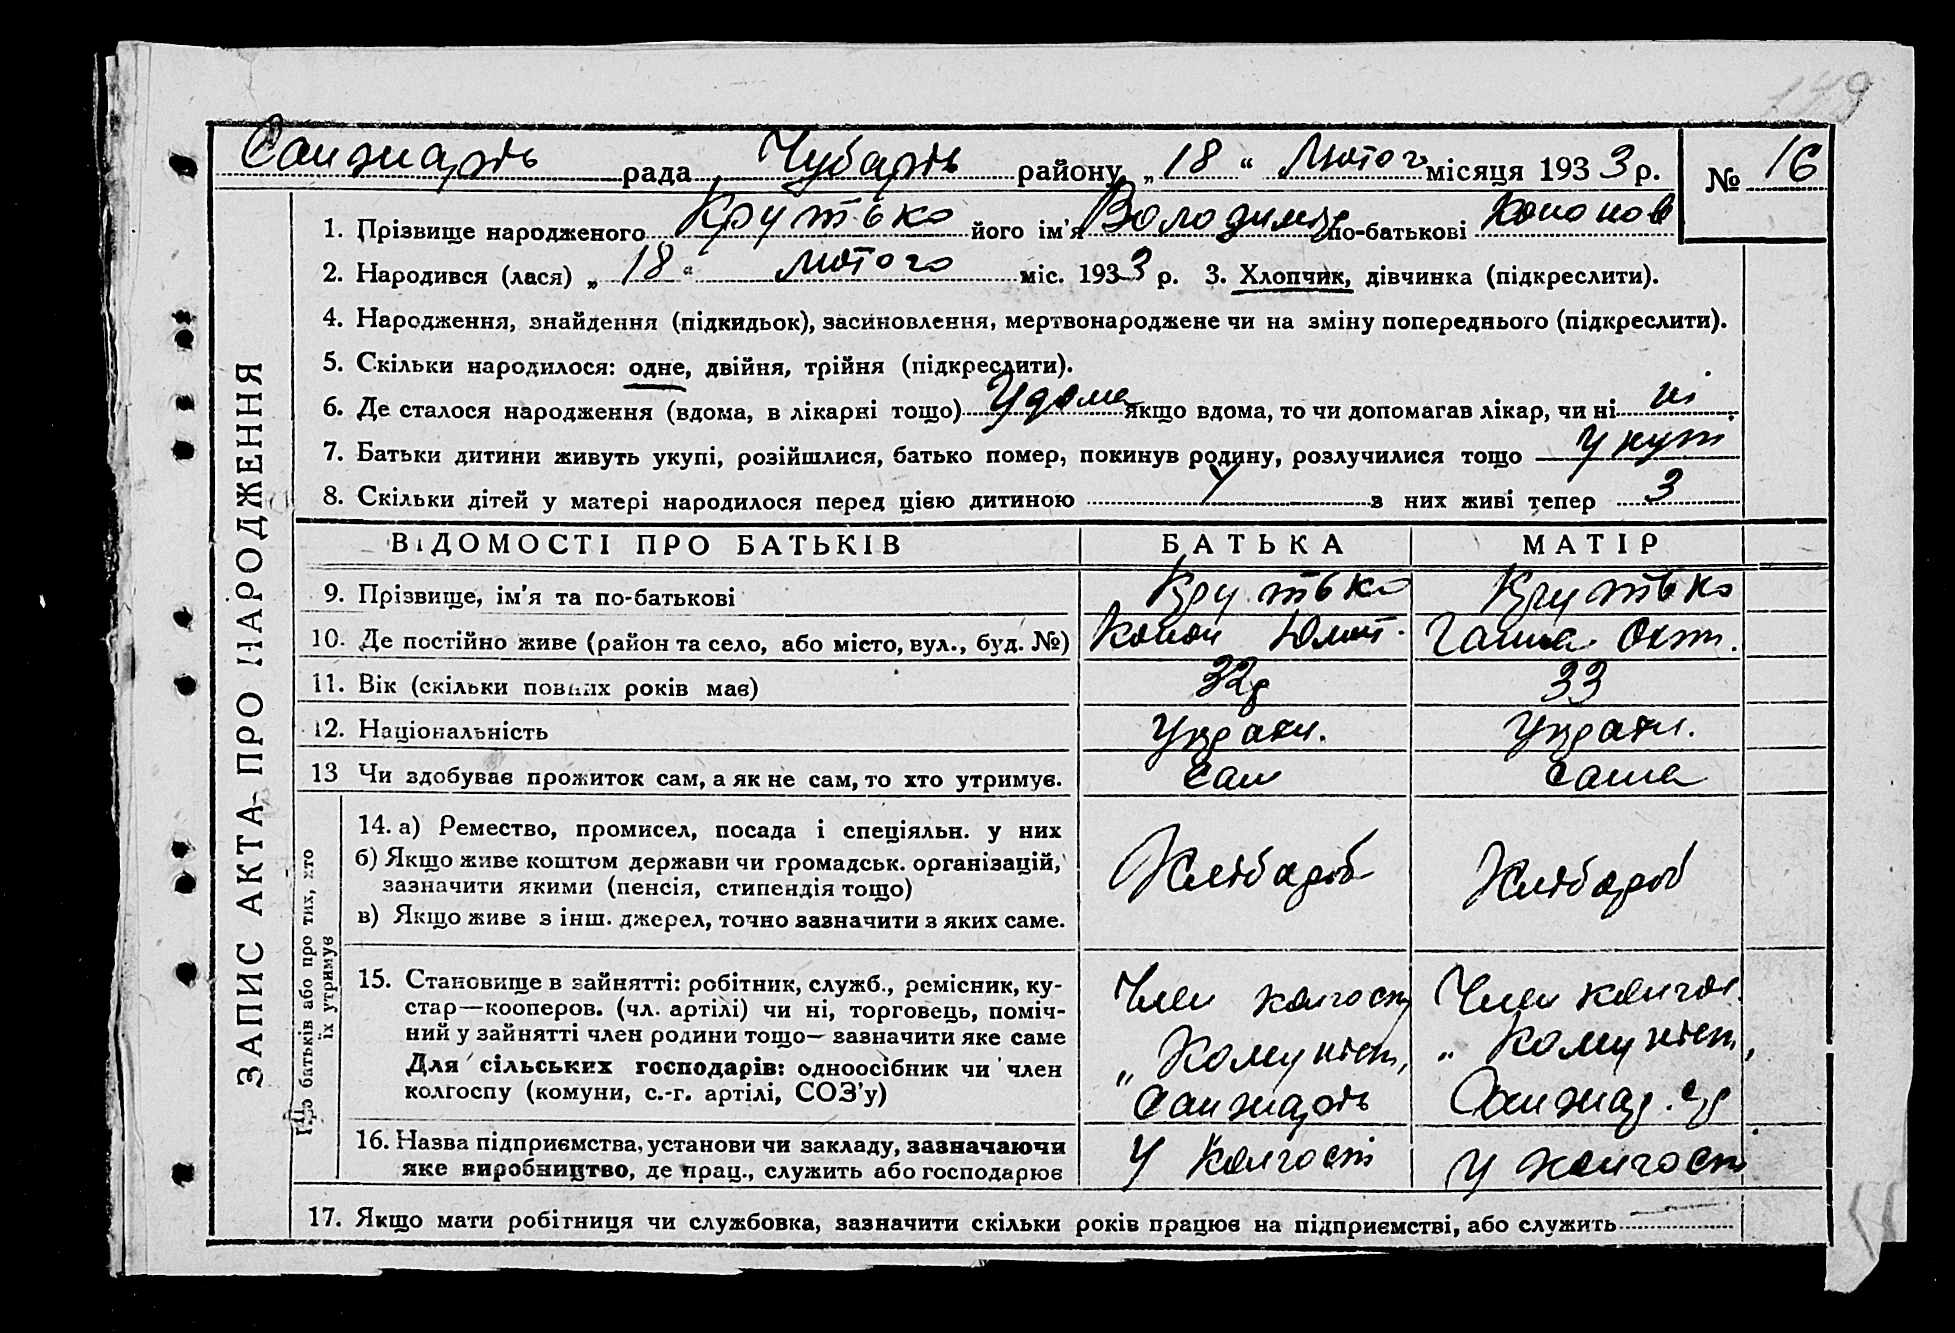 149
Санжарів рада Чубарів району „ 18 “ Лютого місяця 1933 р. № 16
1. Прізвище народженого Крутько його ім'я Володимир по-батькові Кононов
2. Народився (лася) „ 18 “ лютого міс. 1933 р. 3. Хлопчик, дівчинка (підкреслити).
4. Народження, знайдення (підкидьок), засиновлення, мертвонароджене чи на зміну попереднього (підкреслити).
5. Скільки народилося: одне, двійня, трійня (підкреслити).
6. Де сталося народження (вдома, в лікарні тощо) Удома якщо вдома, то чи допомагав лікар, чи ні ні.
7. Батьки дитини живуть укупі, розійшлися, батько помер, покинув родину, розлучилися тощо укуп
8. Скільки дітей у матері народилося перед цією дитиною з них живі тепер 3
ВІДОМОСТІ ПРО БАТЬКІВ БАТЬКА МАТІР
9. Прізвище, ім'я та по-батькові Крутько Крутько
10. Де постійно живе (район та село, або місто, вул., буд. №) Конон Ганна
11. Вік (скільки повних років має) 32р 33
12. Національність Украін. Украін.
13 Чи здобуває прожиток сам, а як не сам, то хто утримує. сам сама
ЗАПИС АКТА ПРО НАРОДЖЕННЯ
Для батьків або про тих, хто
їх утримує
14. а) Ремество, промисел, посада і спеціяльн. у них
б) Якщо живе коштом держави чи громадськ. організацій,
зазначити якими (пенсія, стипендія тощо)
в) Якщо живе з інш. джерел, точно зазначити з яких саме.
Хлібароб Хлібароб
15. Становище в зайнятті: робітник, служб., ремісник, ку-
стар—кооперов. (чл. артілі) чи ні, торговець, поміч-
ний у зайнятті член родини тощо—зазначити яке саме
Для сільських господарів: одноосібник чи член
колгоспу (комуни, с.-г. артілі, СОЗ'у)
Член колгосп Член колгос.
„ Комуніст, „ Комуніст,
Санжарів Санжар.
16. Назва підприємства, установи чи закладу, зазначаючи
яке виробництво, де прац., служить або господарює
У Колгоспі У колгоспі
17. Якщо мати робітниця чи службовка, зазначити скільки років працює на підприємстві, або служить